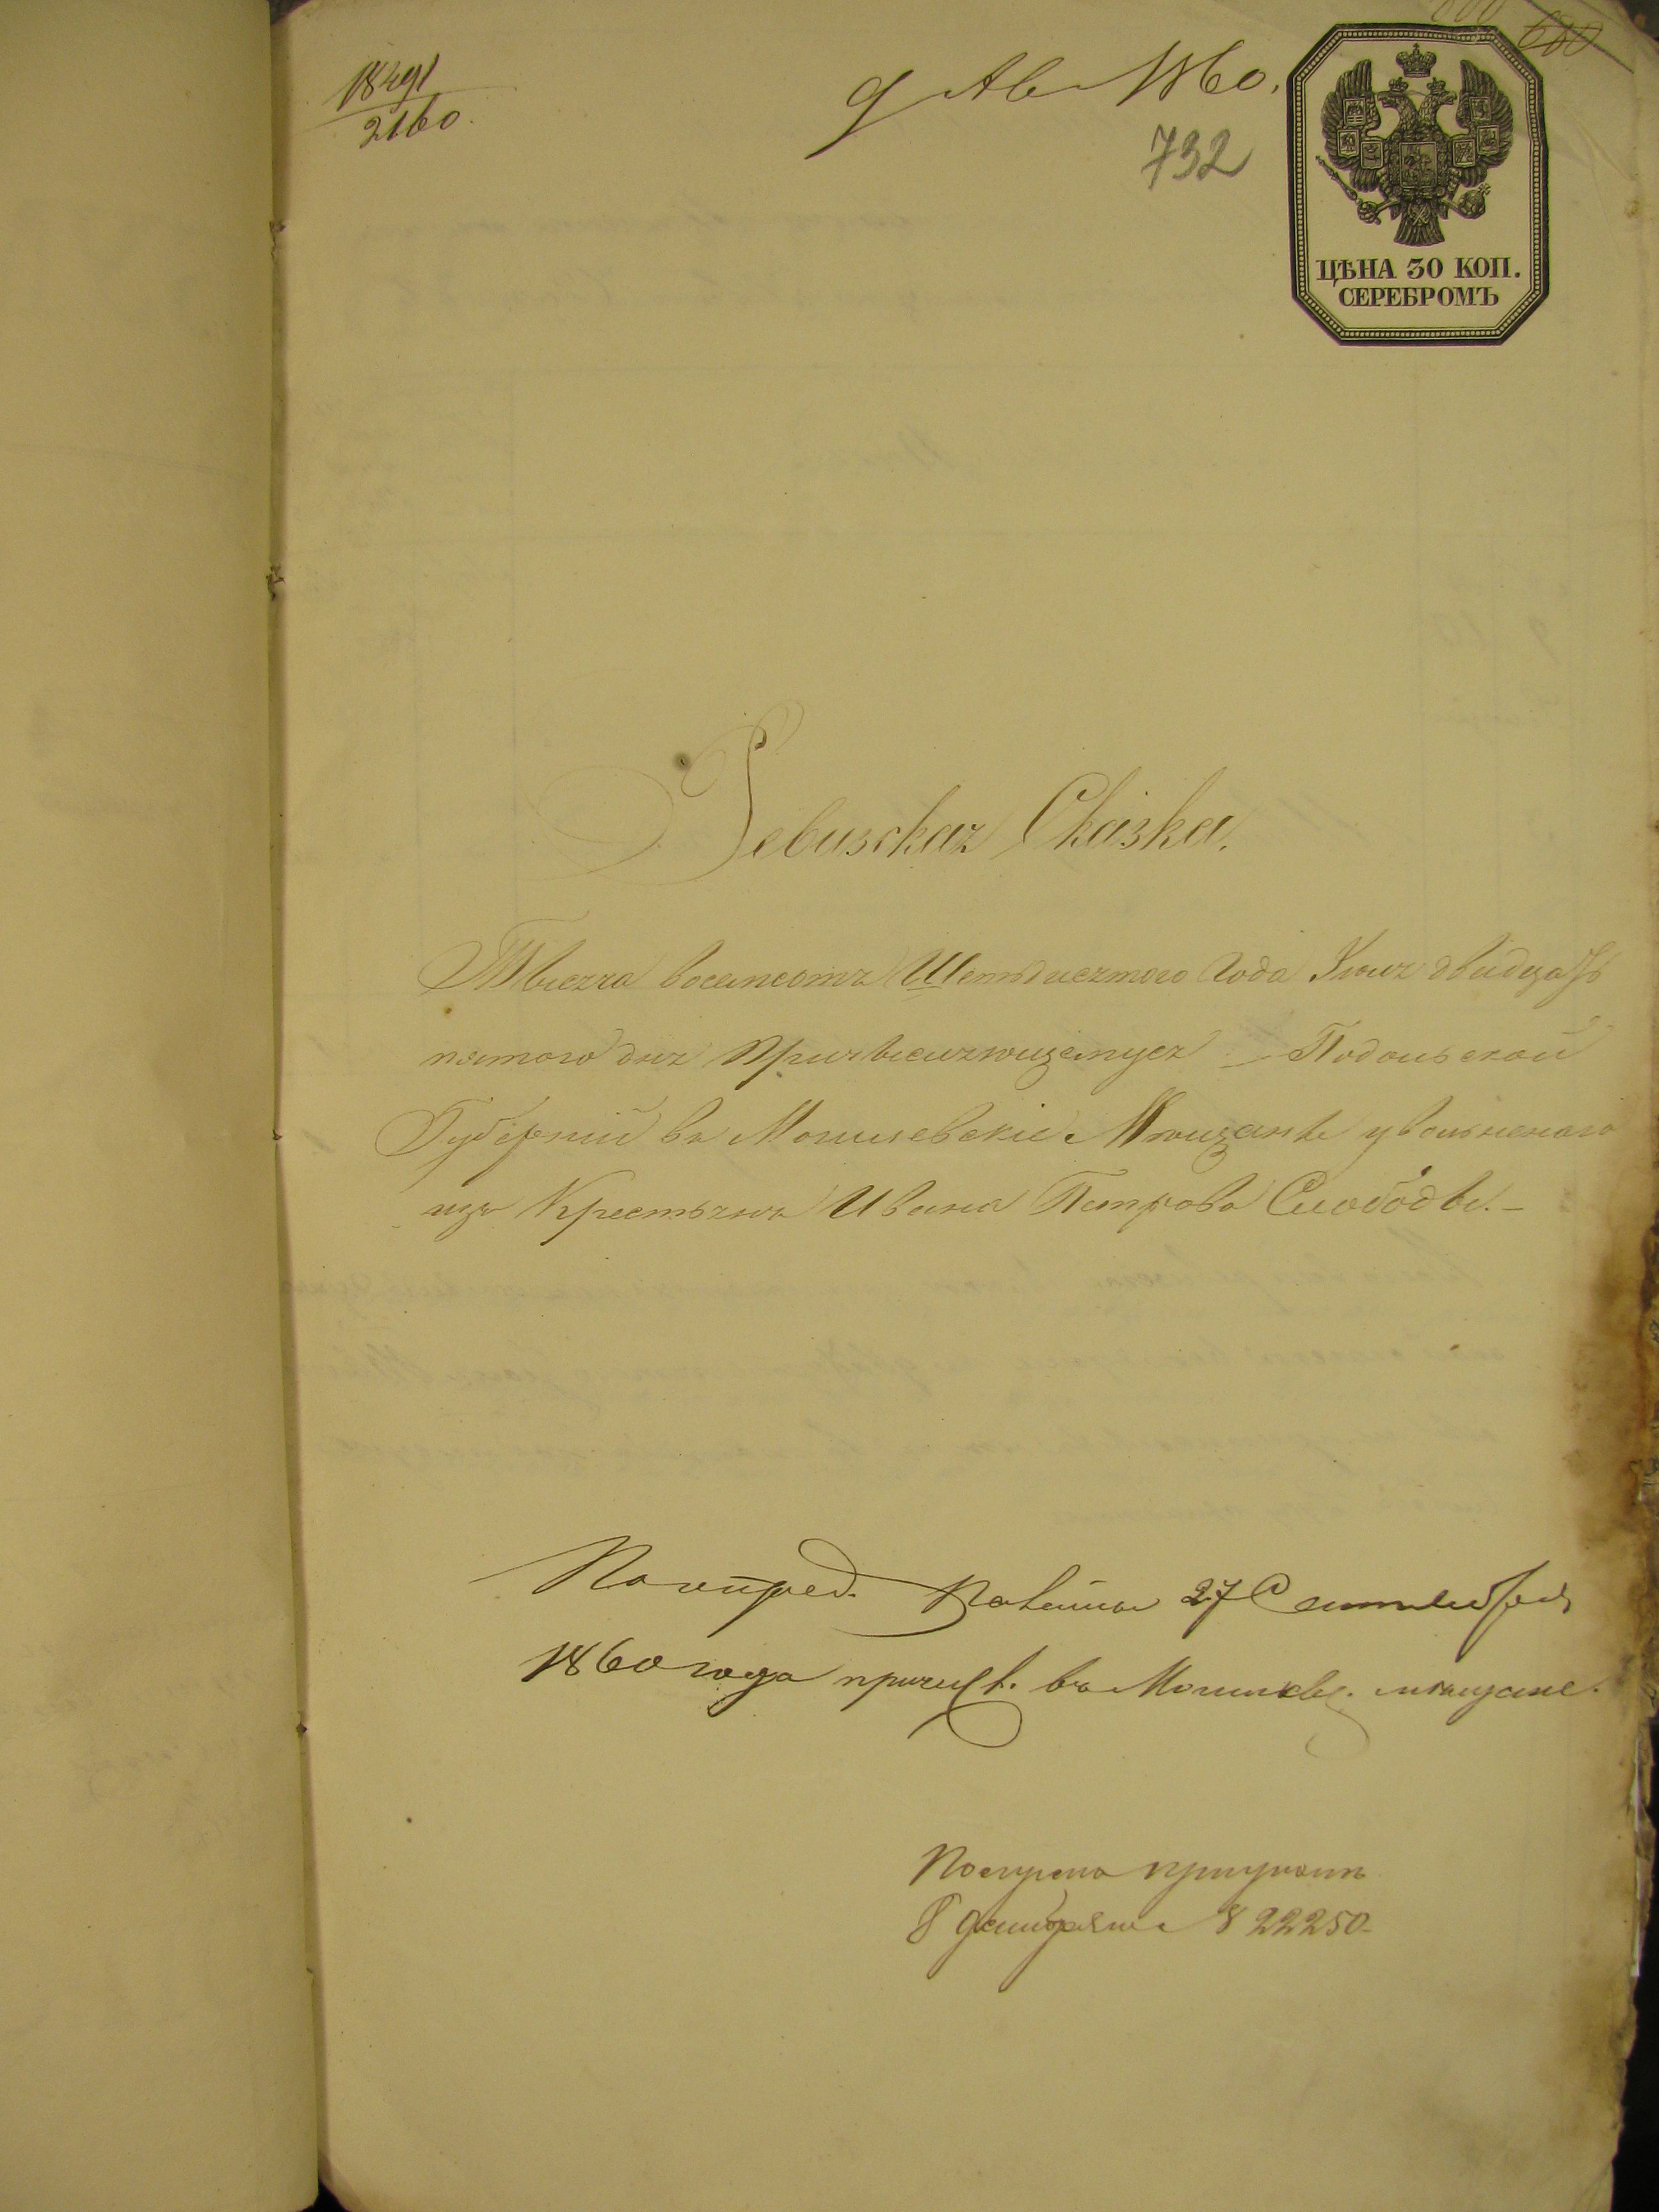 18491
2160.
9 Ав 1860.
732
600
ЦѢНА 30 КОП.
СЕРЕБРОМЪ
Ревизская Сказка.
Тысяча восемсотъ Шестьдесятого Года Іюня двадцать
пятого дня Причисляющемуся Подольской
Губерніи въ Могилевскіе Мѣщане уволненого
изъ Крестьянъ Ивана Петрова Слободы.-
По опред. Палаты 27 Сентября
1860 года причисл. въ Могилев. мѣщане.
8 22250-